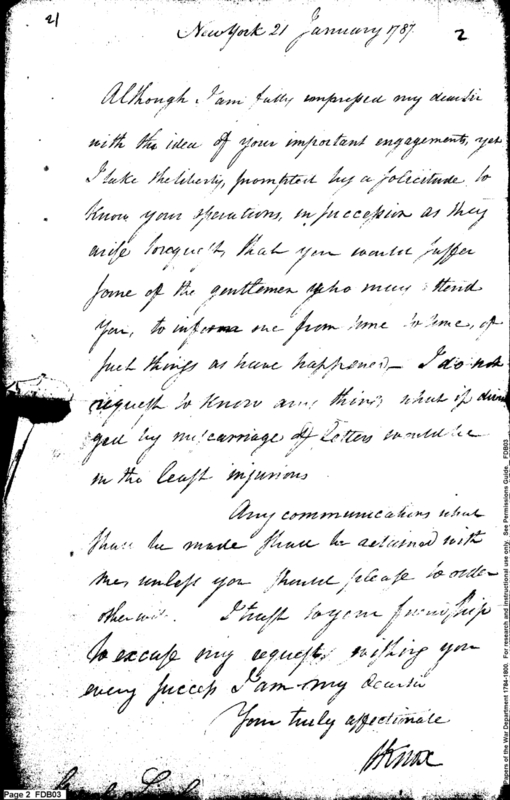 21
New York 21 January 1787.
2
Although I am fully impressed my dear sir
with the idea of your important engagements, yet
I take the liberty, prompted by a solicitude to
know your operations, in succession as they
arise to request, that you would suffer
some of the gentlemen who may attend
you, to inform me from time to time, of
such things as have happened — I do not
request to know any things what if divul
ged by miscarriage of Letters would be
in the least injurious
Any communications which
shall be made shall be retained with
me, unless you should please to order
otherwise. I trust to your friendship
to excuse my request, wishing you
every success I am my dear sir
Your truly affectionate
HKnox
Page 2 FDB03
Papers of the War Department 1784-1800. For research and instructional use only. See Permissions Guide. FDB03